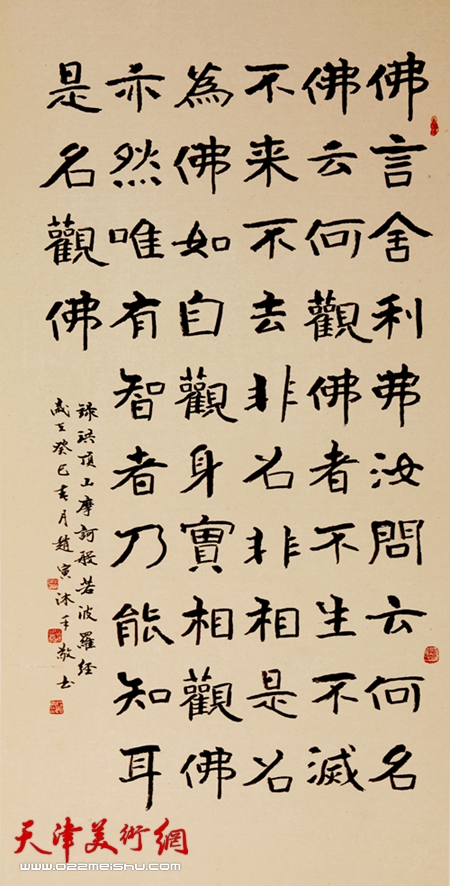 佛言舍利弗汝問云何名
佛云何觀佛者不生不滅
不来不去非名非相是名
為佛如自觀身實相觀佛
亦然唯有智者乃能知耳
是名觀佛
錄珙頂上摩訶般若波羅經
歲在癸巳春月趙寅沐手敬书
天津美術網
www.022meishu.com